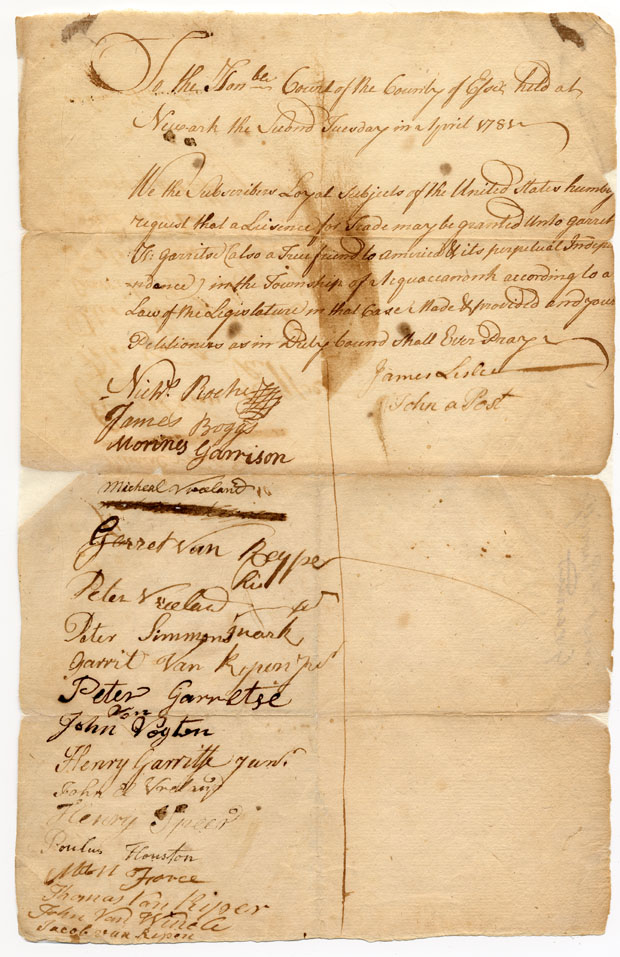 To the Hon.ble Court of the County of Essex held at
Newark the Second Tuesday in April 1781
We the Subscribers Loyal Subjects of the United States humbly
request that a Liesence for Trade may be granted Unto Garret
G: Garritse (also a True friend to america & its perpetual Indepe
ndance) in the Township of Acquaccanonk according to a
Law of the Legislature in that Case Made & provided and your
Petitioners as in Duty bound Shall Ever Pray
James Leslie
John a Post
Nich.s Roche
James Boggs
Morines Garrison
Micheal Vreeland
Gerret Van Reyper
his
Peter Vreeland
Peter Simmons mark
Garrit Van Ripen
Peter Garretse
Von
John Vogten
Henry Garritse Jun.r
John Vreland
Henry Speer
Poulus Houston
Force
Thomas Van Riper
John Van Winkle
Jacob van Ripen